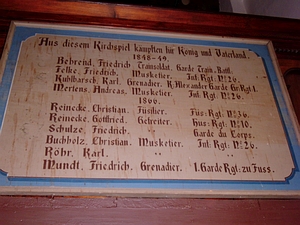 Aus diesem Kirchspiel kämpften für König und Vaterland.
1848-49.
Behrend, Friedrich Trainsoldat, Garde Train. Batl.
Felke, Friedrich, Musketier, Inf: Rgt: № 26.
Kuhlharsch, Karl, Grenadier, K. Alexander Garde Gr: Rg: 1.
Mertens, Andreas, Musketier, Inf: Rgt: № 26.
1866.
Reinecke, Christian, Füsilier, Füs: Rgt: № 36.
Reinecke, Gottfried, Gefreiter, Hus: Rgt: № 10.
Schulze, Friedrich, " Garde du Corps.
Buchholz, Christian, Musketier, Inf: Rgt: № 26.
Röhr, Karl, " "
Mundt, Friedrich, Grenadier, 1. Garde Rgt: zu Fuss.